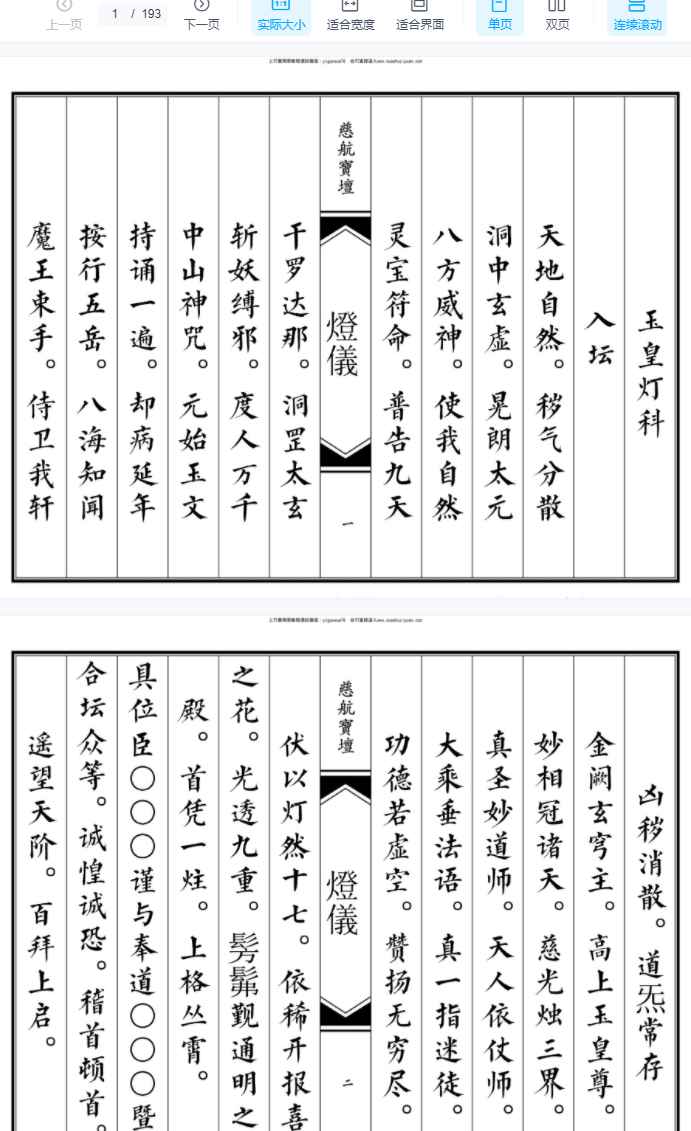 上一页
1 / 193
下一页
1:1
实际大小
适合宽度
适合界面
单页
双页
连续滚动
玉皇灯科
入坛
天地自然。秽气分散
洞中玄虚。晃朗太元
八方威神。使我自然
灵宝符命。普告九天
慈航寶壇
燈儀
一
干罗达那。洞罡太玄
斩妖缚邪。度人万千
中山神咒。元始玉文
持诵一遍。却病延年
按行五岳。八海知闻
魔王束手。侍卫我轩
凶秽消散。道炁常存
金阙玄穹主。高上玉皇尊。
妙相冠诸天。慈光烛三界。
真圣妙道师。天人依仗师。
大乘垂法语。真一指迷徒。
功德若虚空。赞扬无穷尽。
慈航寶壇
燈儀
二
伏以灯然十七。依稀开报喜
之花。光透九重。髣髴觐通明之
殿。首凭一炷。上格丛霄。
具位臣〇〇〇谨与奉道〇〇〇暨
合坛众等。诚惶诚恐。稽首顿首。
遥望天阶。百拜上启。